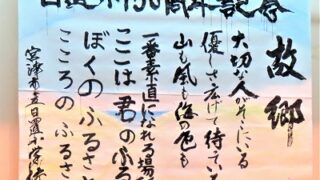 日置小150周年記念
故郷
大切な人がそこにいる
優しさ広げて待っている
山も風も海の色も
一番素直になれる場所
ここは君のふる
ぼくのふるさと
こころのふるさ
宮津市立日置小学校